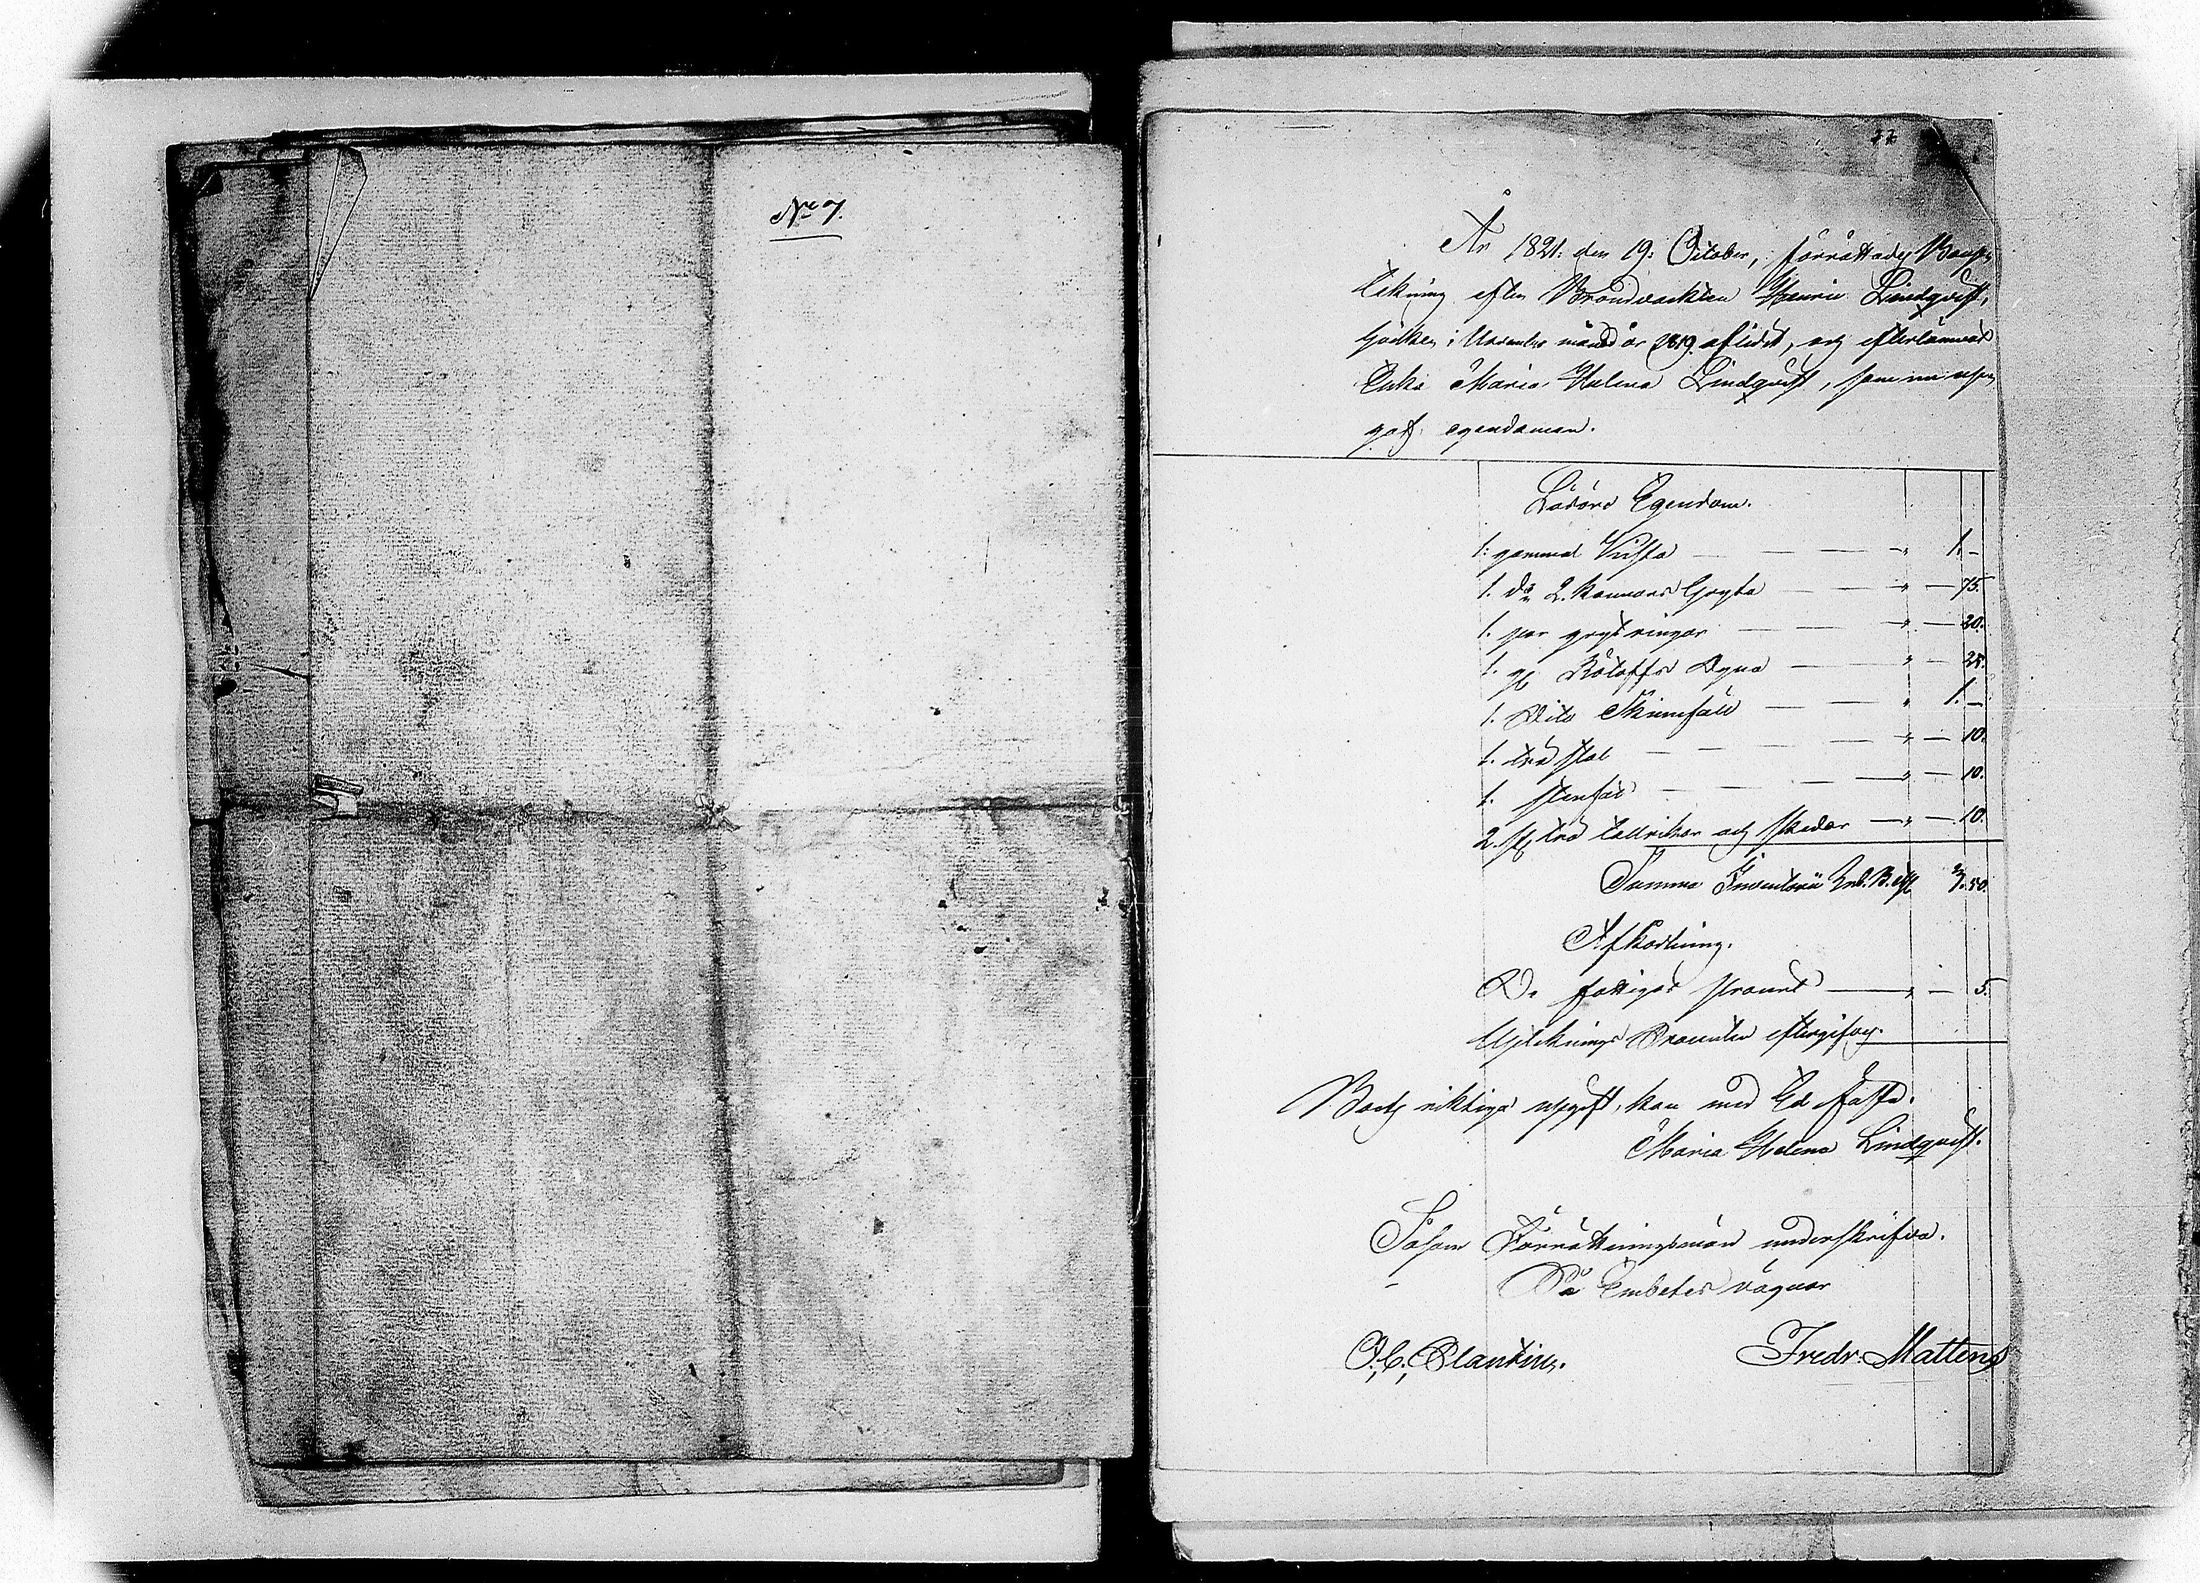 No 7.
22
År 1821. den 19. October, förrättades Boup-
tekning efter Brandvackten Henric Lindqvist,
hvilken i November månad år 1819. aflidit, och efterlämnat
Enka Maria Helena Lindqvist, som nu upp-
gaf egendomen.
Lösöre Egendom.
1: gammal Kista — — — " 1. —
1. do 2. kannors Gryta — — " — 75.
1. par grytringar — — " — 20.
1. gl. Dyna — — " — 25.
1. Dito Skinnfäll — — " 1. —
1. träd stol — — — " — 10.
1. stenfat — — — " — 10.
2. st. träd tallrikar och skedar — " — 10.
Summa Inventarii Rub. B. Ass. 3. 50.
Afkortning.
De fattigas procent — " — 5.
Uptecknings Procenten eftergifves.
Boets riktiga upgift, kan med Ed fästas.
Maria Helena Lindqvist.
Såsom Förrättningsmän underskrifva.
På Embetes vägnar
O. C. Plantin. Fredr: Mattens